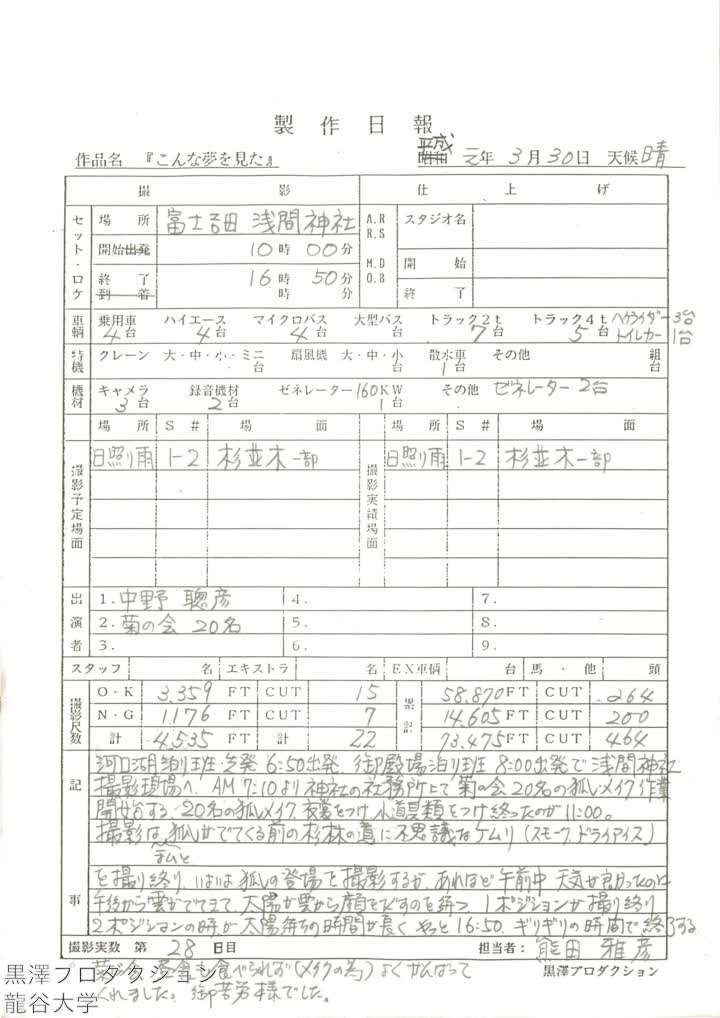 製作日報
作品名 『こんな夢を見た』 昭和 平成 元年 3月30日 天候 晴
撮影 仕上げ
セット・ロケ 場所 富士吉田 浅間神社 A.R R.S スタジオ名
開始出発 10時00分 M.D O.B 開始
終了到着 16時50分 時分 終了
車輌 乗用車 4台 ハイエース 4台 マイクロバス 4台 大型バス 台 トラック2t 7台 トラック4t 5台 ハイライダー 3台 トイレカー 1台
特機 クレーン 大・中・小・ミニ 台 扇風機 大・中・小 台 散水車 1台 その他 組台
機材 キャメラ 3台 録音機材 2台 ゼネレーター 160KW 1台 その他 ゼネレーター 2台
場所 S# 場面 場所 S# 場面
撮影予定場面 日照り雨 1-2 杉並木一部 撮影実績場面 日照り雨 1-2 杉並木一部
出演者 1. 中野 聰彦 4. 7.
2. 菊の会 20名 5. 8.
3. 6. 9.
スタッフ 名 エキストラ 名 EX車輌 台 馬・他 頭
撮影尺数 O・K 3.359 FT CUT 15 累計 58.870 FT CUT 264
N・G 1.176 FT CUT 7 14.605 FT CUT 200
計 4.535 FT 計 22 73.475 FT CUT 464
記事
河口湖泊り班・先発 6:50出発、御殿場泊り班 8:00出発で浅間神社
撮影現場へ、AM 7:10より神社の社務所にて菊の会20名の狐メイク作業
開始する。20名の狐メイク 衣裳をつけ 小道具類をつけ終ったのが 11:00。
撮影は、狐がでてくる前の杉林の道に不思議なケムリ(スモーク、ドライアイス)
を撮り終り、いよいよ狐の登場を撮影するが、あれほど午前中 天気が良かったのに
午後から雲がでてきて、太陽が雲から顔をだすのを待つ、1ポジションが撮り終り
2ポジションの時が、太陽待ちの時間が長く やっと 16:50、ギリギリの時間で終了する
撮影実数 第 28 日目 担当者: 熊田 雅彦
菊の会 昼食も食べられず(メイクの為)よくがんばって 黒澤プロダクション
くれました。御苦労様でした。
黒澤プロダクション
龍谷大学